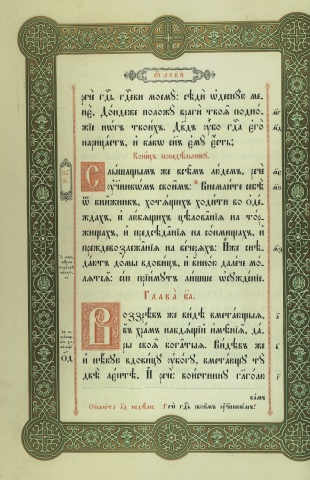 ѿ лꙋкѝ
речѐ гдⷭ҇ь гдⷭ҇еви моемꙋ̀: сѣдѝ ѡ҆деснꙋ́ю менѐ,
До́ндеже положꙋ̀ врагѝ твоѧ̑ подно́-
жїе но́гъ твои́хъ. Дв҃дъ ᲂу҆̀бо гдⷭ҇а є҆го̀
нарица́етъ, и҆ ка́кѡ сн҃ъ є҆мꙋ̀ є҆́сть;
Коне́цъ понедѣ́льникꙋ.
Слы́шащымъ же всѣ̑мъ лю́демъ, речѐ
ᲂу҆чн҃кѡ́мъ свои̑мъ: Внемли́те себѣ̀
ѿ кни̑жникъ, хотѧ́щихъ ходи́ти во ѻ҆де́-
ждахъ, и҆ лю́бѧщихъ цѣлова̑нїѧ на тор-
жи́щихъ, и҆ предсѣда̑нїѧ на со́нмищихъ, и҆
преждевозлега̑нїѧ на вече́рѧхъ: И҆̀же снѣ-
да́ютъ до́мы вдови́цъ, и҆ вино́ю дале́че мо́-
лѧтсѧ: сі́и прїи́мꙋтъ ли́шшее ѡ҆сꙋжде́нїе.
Глава̀ ка.
Воззрѣ́въ же ви́дѣ вмета́ющыѧ
въ хра́мъ набдѧ́щїй и҆мѣ̑нїѧ, да́-
ры своѧ̑ бога̑тыѧ. Ви́дѣвъ же
и҆ нѣ́кꙋю вдови́цꙋ ᲂу҆бо́гꙋ, вмета́ющꙋ тꙋ̀
двѣ̀ лє́птѣ. И҆ речѐ: вои́стиннꙋ глаго́лю
ва́мъ